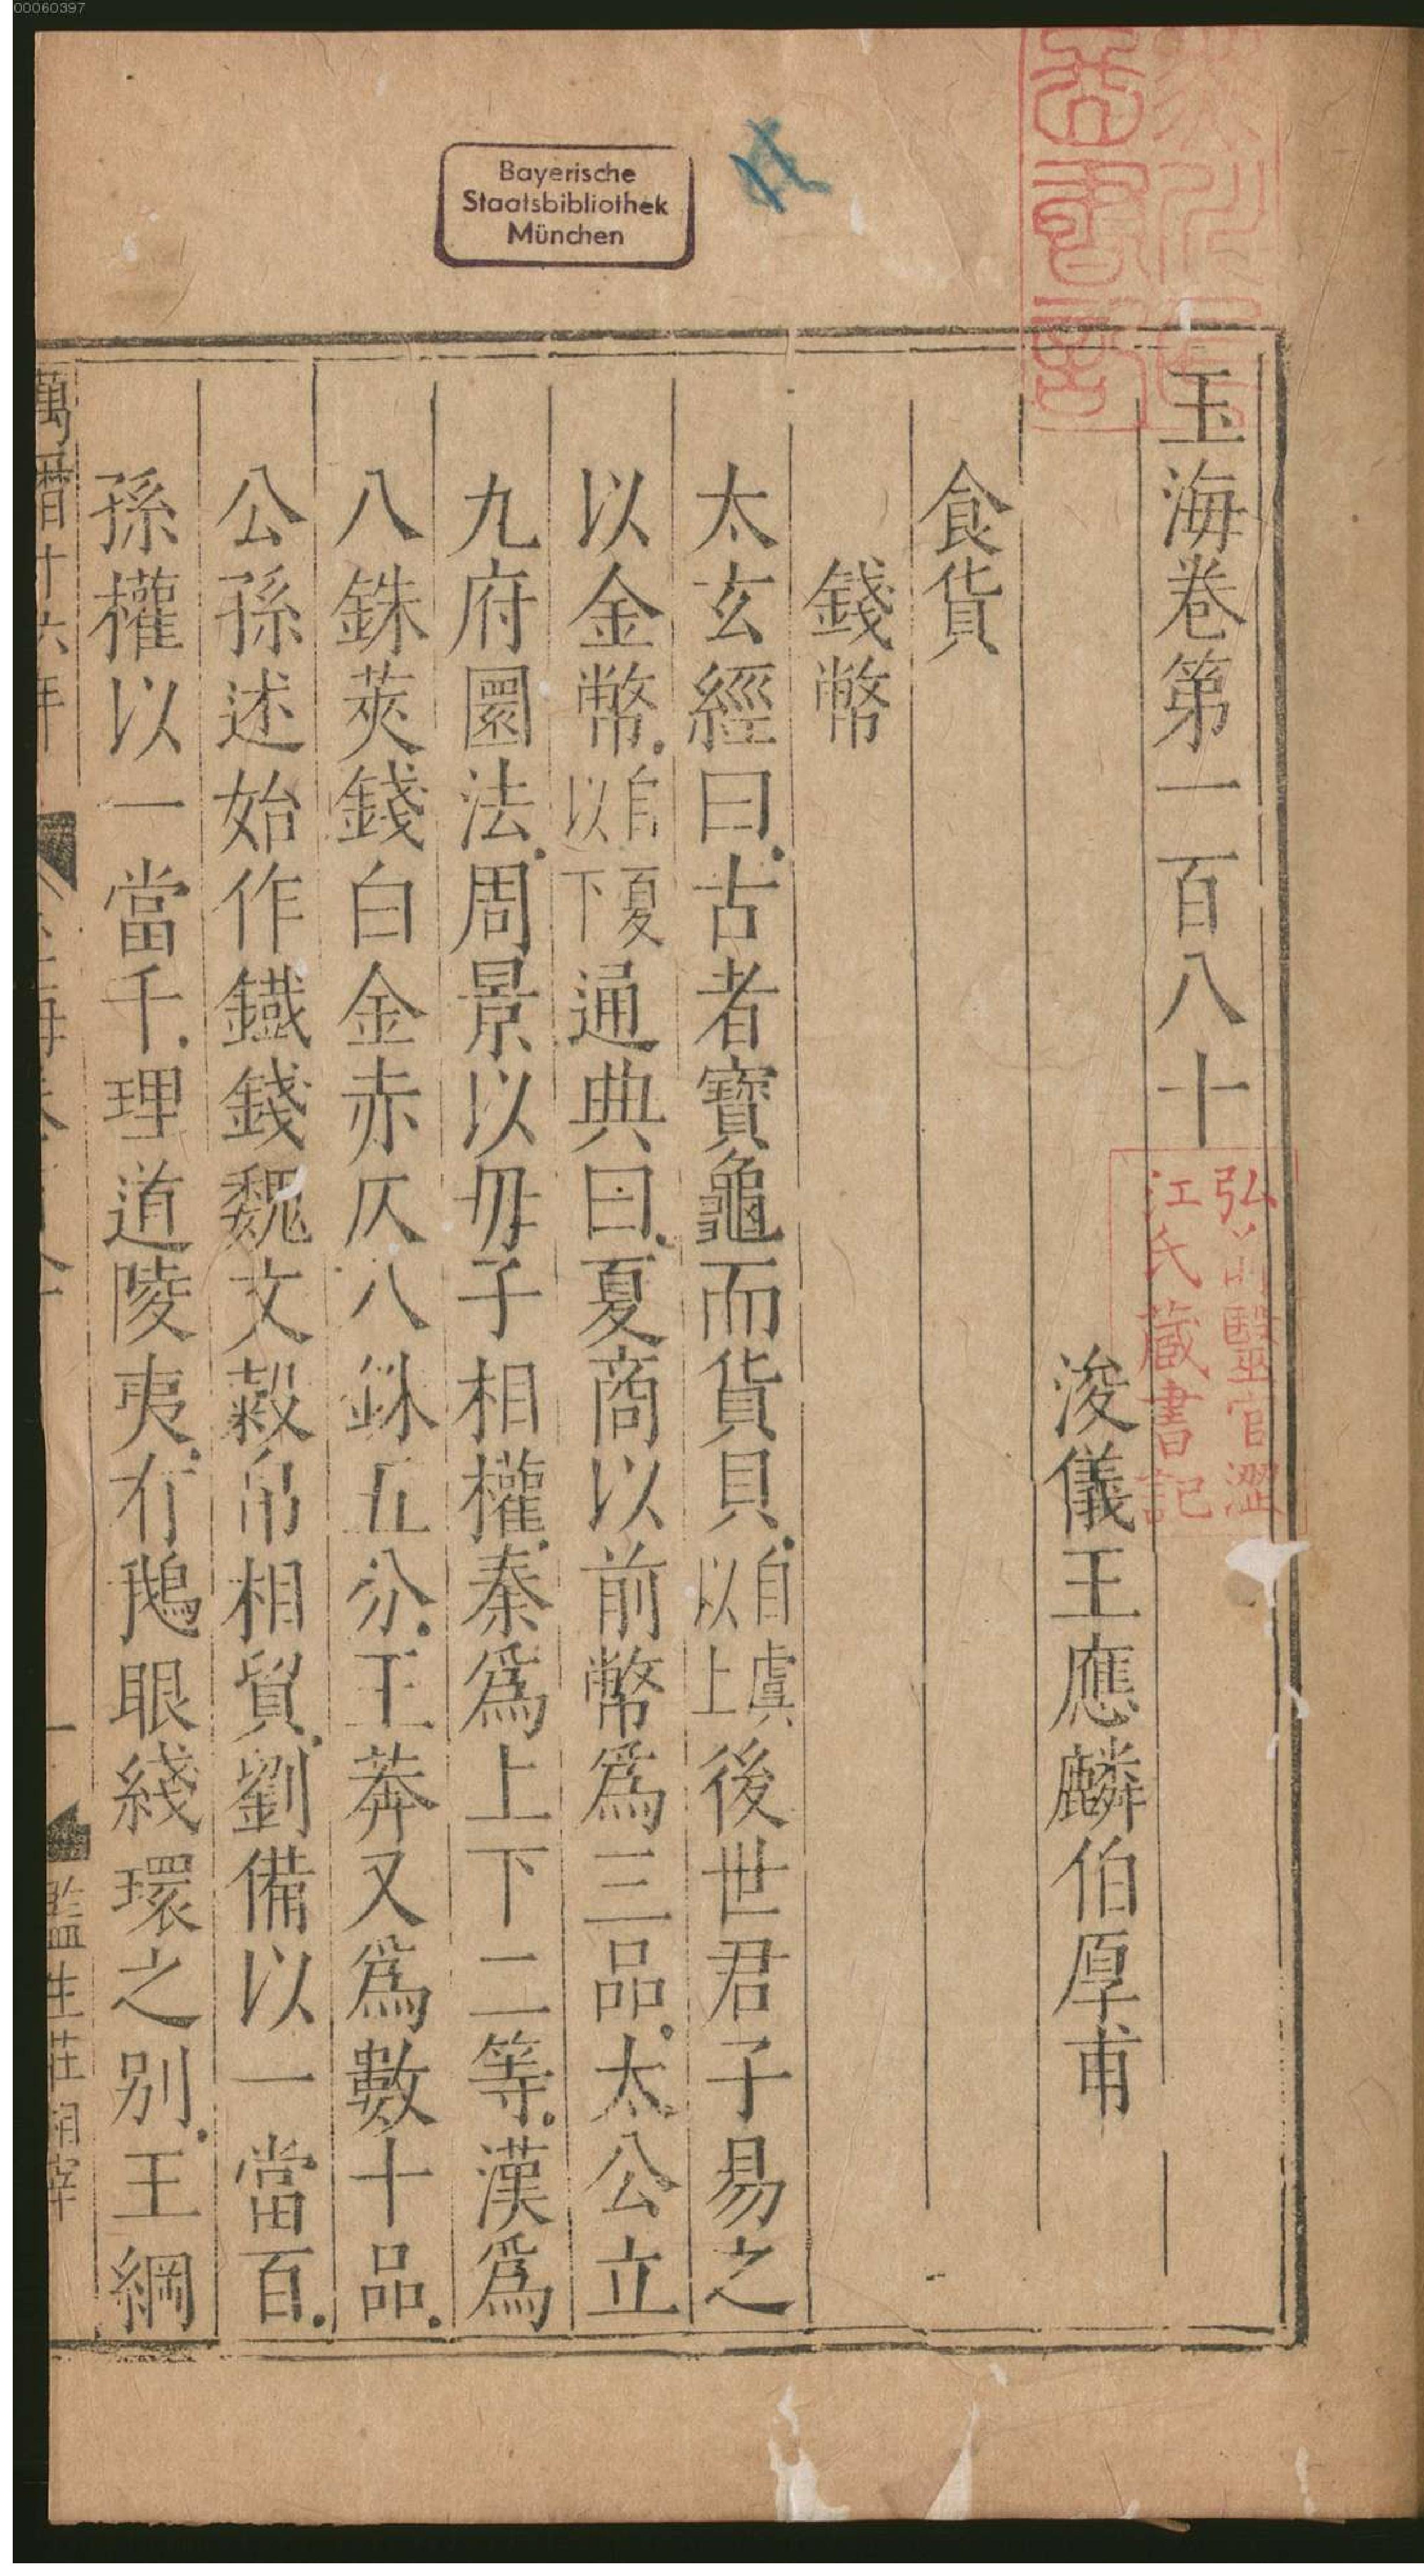 00060397
Bayerische
Staatsbibliothek
München
玉海卷第一百八十
浚儀王應麟伯厚甫
食貨
錢幣
太玄經曰古者寶龜而貨貝自虞以上後世君子易之
以金幣自夏以下通典曰夏商以前幣為三品太公立
九府圜法周景以毋子相權秦爲上下二等漢爲
八銖莢錢白金赤仄八銖五分王莽又爲數十品
公孫述始作鐵錢魏文糓帛相貿劉備以一當百
孫權以一當千理道陵夷冇鵝眼綫環之别王綱
萬曆十六年
玉海卷
一
監生莊
弘前醫官澀
江氏藏書記